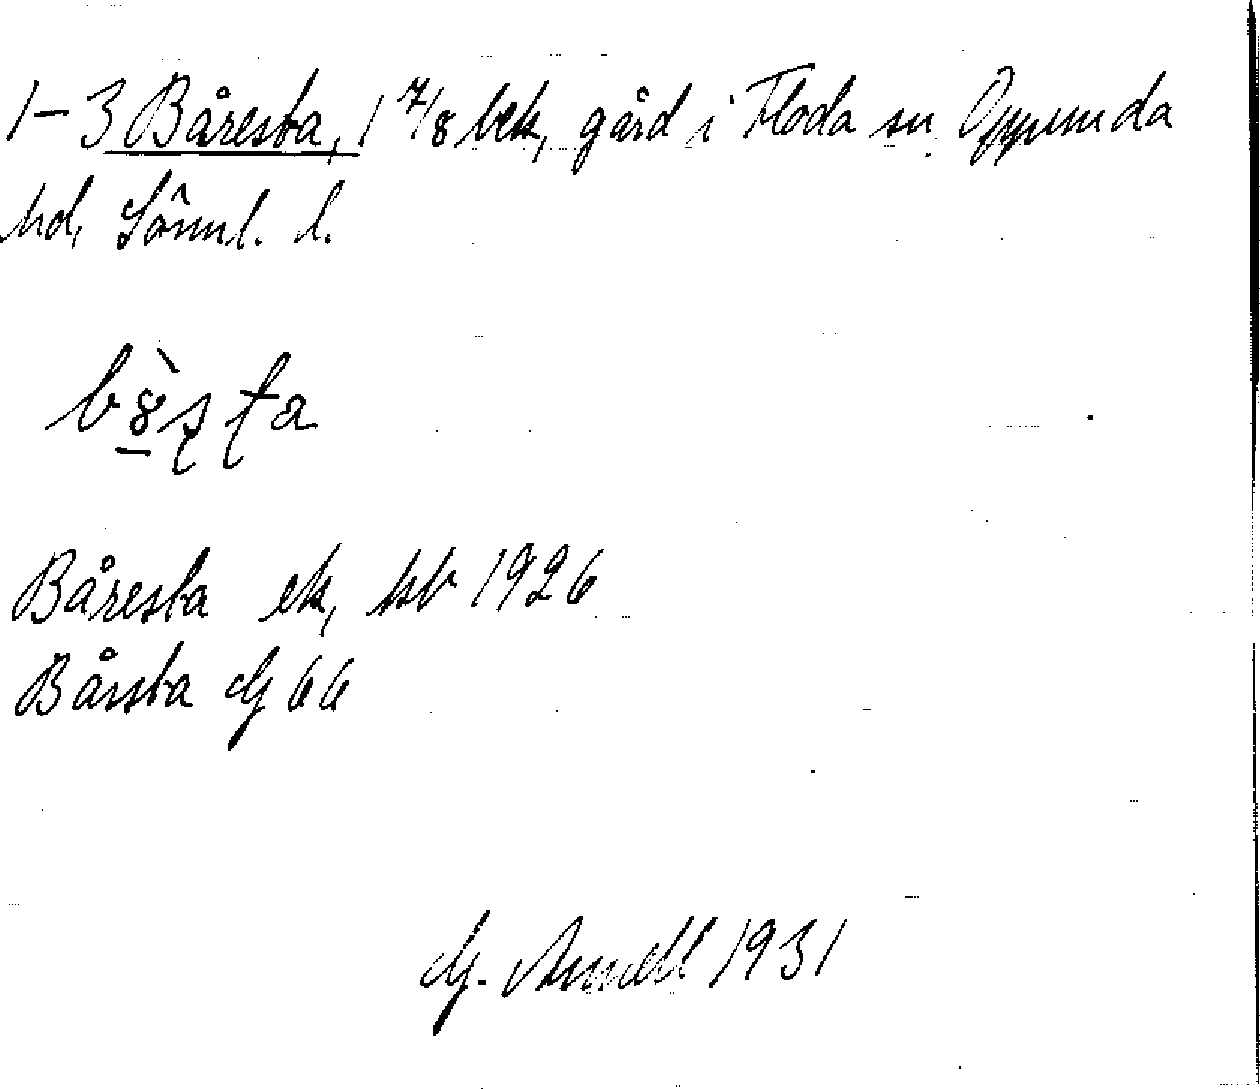 1–3 Båresta, 1 7/8 bek, gård i Floda sn. Oppunda
hd, Sörml. l.
Båresta ek, kb 1926
Båssta G 66
G. Arnell 1931